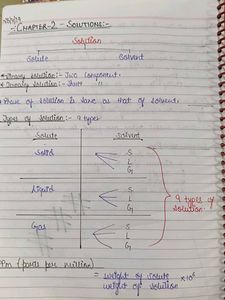 -: CHAPTER-2 - SOLUTIONS:-
Solution
Solute Solvent
* Binary solution:- Two component.
* Ternary solution:- Three "
* Phase of solution is same as that of solvent.
Types of solution:- 9 types
Solute Solvent
Solid S
L
G
Liquid S
L
G
Gas S
L
G
9 types of
solution
PPm (parts per million)
= weight of solute × 10⁶
weight of solution